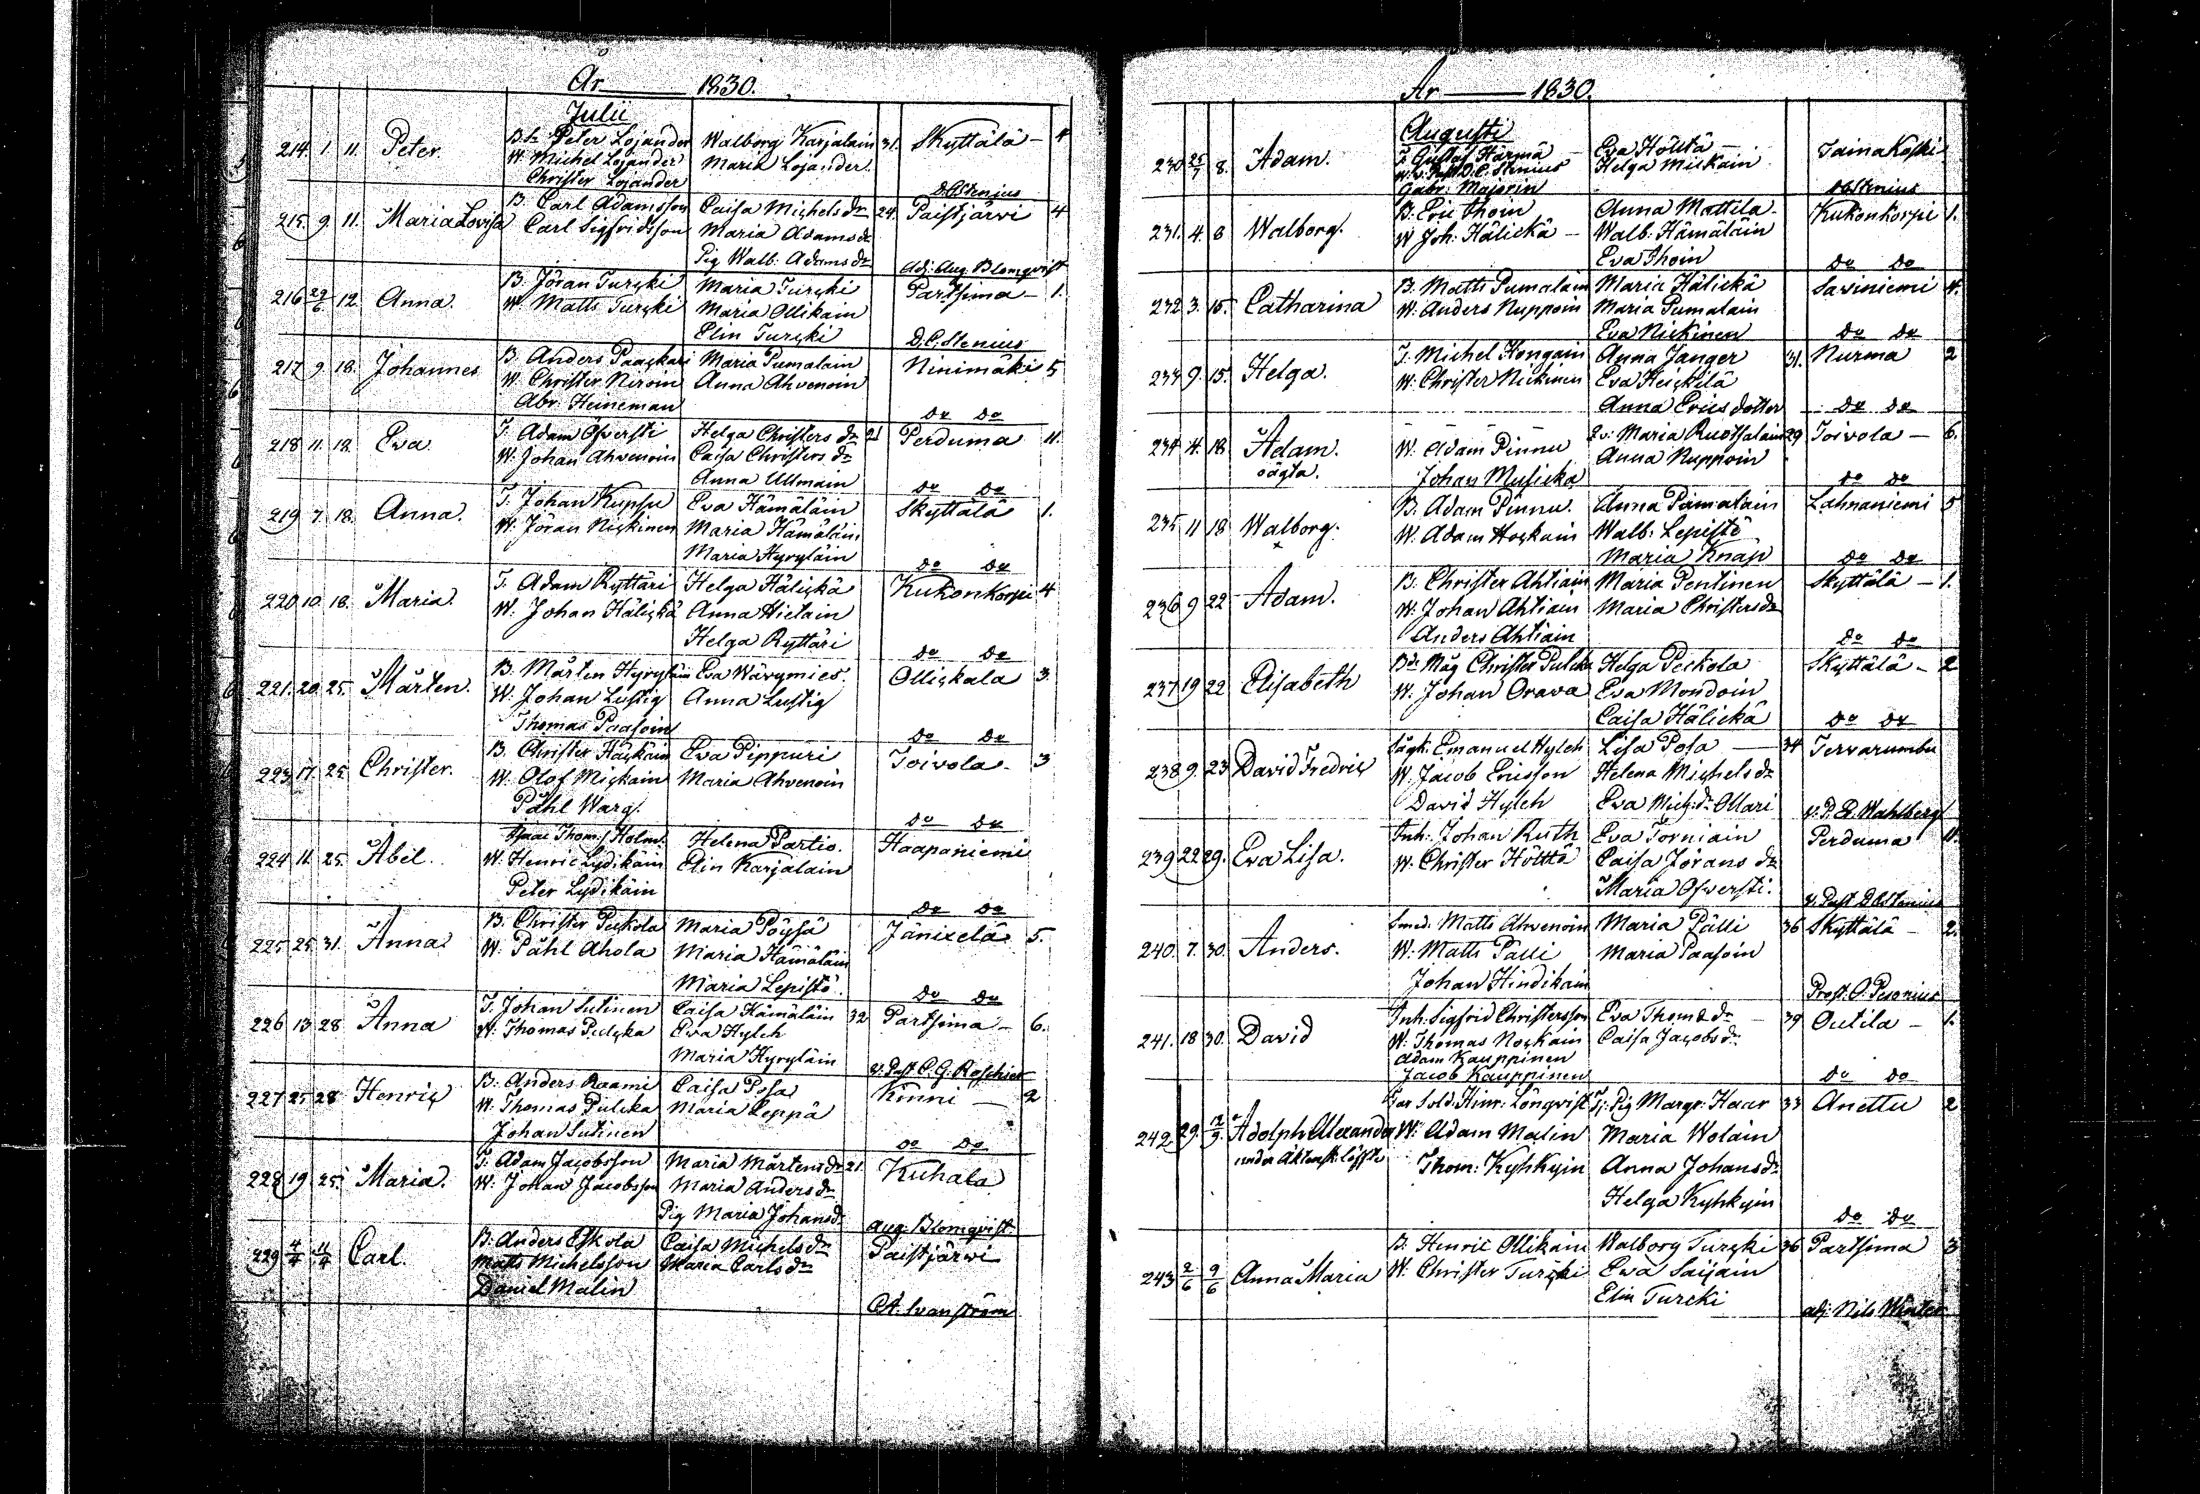 År 1830.
Julii
214. 1. 11. Peter. Bd. Peter Lojander Walborg Karjalain 31. Skyttälä - 4
W. Michel Lojander Maria Lojander
Christer Lojander D.E. Stenius
215. 9. 11. Maria Lovisa B. Carl Adamsson Caisa Michels dr 24. Paistjärvi 4
Carl Sigfridsson Maria Adams dr
Pig Walb: Adams dr Adj: Aug. Blomqvist
216 29/6 12. Anna. B. Jöran Turcki Maria Turcki Partsima - 1.
W. Matts Turcki Maria Ollikain
Elin Turcki D.E. Stenius
217 9. 18. Johannes B. Anders Paackari Maria Pumalain Ninimäki 5
W. Christer Niroin Anna Ahvenoin
Abr: Heineman do do
218 11. 18. Eva. T. Adam Öfversti Helga Christers dr 21 Perduma 11.
W. Johan Ahvenoin Caisa Christers dr
Anna Ullmain do do
219 7. 18. Anna. T. Johan Kupsu Eva Hämäläin Skyttälä 1.
W. Jöran Nickinen Maria Hämäläin
Maria Hyryläin do do
220 10. 18. Maria. T. Adam Ryttäri Helga Hälickä Kukonkorpi 4
W. Johan Hälickä Anna Hietain
Helga Ryttäri do do
221. 20. 25. Mårten. B. Mårten Hyryläin Eva Wärymies. Ollickala 3.
W. Johan Lustig Anna Lustig
Thomas Paasoin do do
223 17. 25. Christer. B. Christer Häckäin Eva Pippuri Toivola - 3
W. Olof Mickain Maria Ahvenoin
Påhl Warg. do do
224 11. 25. Abel. Isaac Thom: s. Holm. Helena Partio. Haapaniemi
W. Henric Lydikäin Elin Karjalain
Peter Lydikäin do do
225. 25. 31. Anna B. Christer Peckola Maria Pöysä Jänixelä 5.
W. Påhl Ahola Maria Hämäläin
Maria Lepistö. do do
226 13 28 Anna T. Johan Sutinen Caisa Hämäläin 32 Partsima - 6.
W. Thomas Pulcka Eva Hylch
Maria Hyryläin v. Past C.G. Roschier
227 25 28 Henric B. Anders Raami Caisa Posa Kinni - 2
W. Thomas Pulcka Maria Leppä
Johan Sutinen do do
228 19 25. Maria. T. Adam Jacobsson Maria Mårtens dr 21. Kuhala
W. Johan Jacobsson Maria Anders dr
Pig Maria Johans dr Aug. Blomqvist.
229 4/4 11/4 Carl. B. Anders Eskola Caisa Michels dr Paistjärwi
Matts Michelsson Maria Carls dr
Daniel Malin
År 1830.
Augusti
230 25/7 8. Adam. T. Gustaf Härmä - Eva Hölttä - Tainakoski
W. v. Past D.E. Stenius Helga Mickain
Gabr. Majorin DE Stenius
231. 4. 8 Walborg. B. Eric Thoin Anna Mattila - Kukonkorpi 1.
W Joh: Hälickä - Walb: Hämäläin
Eva Thoin do do
232. 3. 15. Catharina B. Matts Pumalain Maria Hälickä Saviniemi 4.
W. Anders Nuppoin Maria Pumalain
Eva Nickinen do do
233 9. 15. Helga. T. Michel Kongain Anna Janger 31. Nurma 2
W. Christer Nickinen Eva Heickilä
Anna Erics dotter do do
234 4. 18 Adam. W. Adam Pinnu Maria Ruotsalain 29 Toivola - 6.
oägta. Johan Musicka Anna Nuppoin
do do
235. 11 18 Walborg. B. Adam Pinnu. Anna Pumalain Lahnaniemi 5
W. Adam Hockain Walb: Lepistö
Maria Knap do do
236 9 22 Adam. B. Christer Ahtiain Maria Pentinen Skyttälä - 1.
W. Johan Ahtiain Maria Christers dr
Anders Ahtiain do do
237 19 22 Elisabeth Bd. Måg Christer Pulcka Helga Peckola Skyttälä - 2
W. Johan Orava Eva Mondoin
Caisa Hälickä do do
238 9. 23 David Fredric Emanuel Hylch Lisa Posa 34 Tervarumbu
W. Jacob Ericsson Helena Michels dr
David Hylch Eva Mich: dr Ollari v. P. E. Wahlberg
239 22 29. Eva Lisa. Inh: Johan Ruth Eva Torniain Perduma 11.
W. Christer Hölttä Caisa Jörans dr
Maria Öfversti. v. Past DE Stenius
240. 7. 30. Anders. Smed: Matts Ahvenoin Maria Pälli 36 Skyttälä - 2.
W. Matts Pälli Maria Paasoin
Johan Hindikain Prost. O. Pesonius
241. 18 30. David Inh: Sigfrid Christersson Eva Thoms dr - 39 Outila - 1.
W. Thomas Nockain Caisa Jacobs dr
Adam Kauppinen
Jacob Kauppinen do do
242 29. 12/9. Adolph Alexander Sold: Hinr: Lönqvist Pig Margr: Haar 33 Anettu 2
under Äktensk: löffte W. Adam Malin Maria Wolain
Thom: Kyhkyin Anna Johans dr
Helga Kyhkyin do do
243 2/6 9/6 Anna Maria B. Henric Ollikain Walborg Turcki 36 Partsima 3
W. Christer Turcki Eva Saijain
Elin Turcki adj: Nils Winter